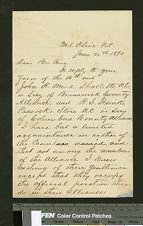 Mt. Olive N.C.
June 20th 1890
Dear Mr.
In reply to your
favor of the 16th inst
John H. Mints Shallotte N.C.
is Secy of Brunswick County
Alliance and
Store N.C. is Secy
of Columbus County Alliance
I have but a limited
acquaintance in either of
the Counties named and
that not among the members
of the Alliance I know
nothing of these gentlemen
except that they occupy
the official position they
do in their Alliance
FEN Color Control Patches